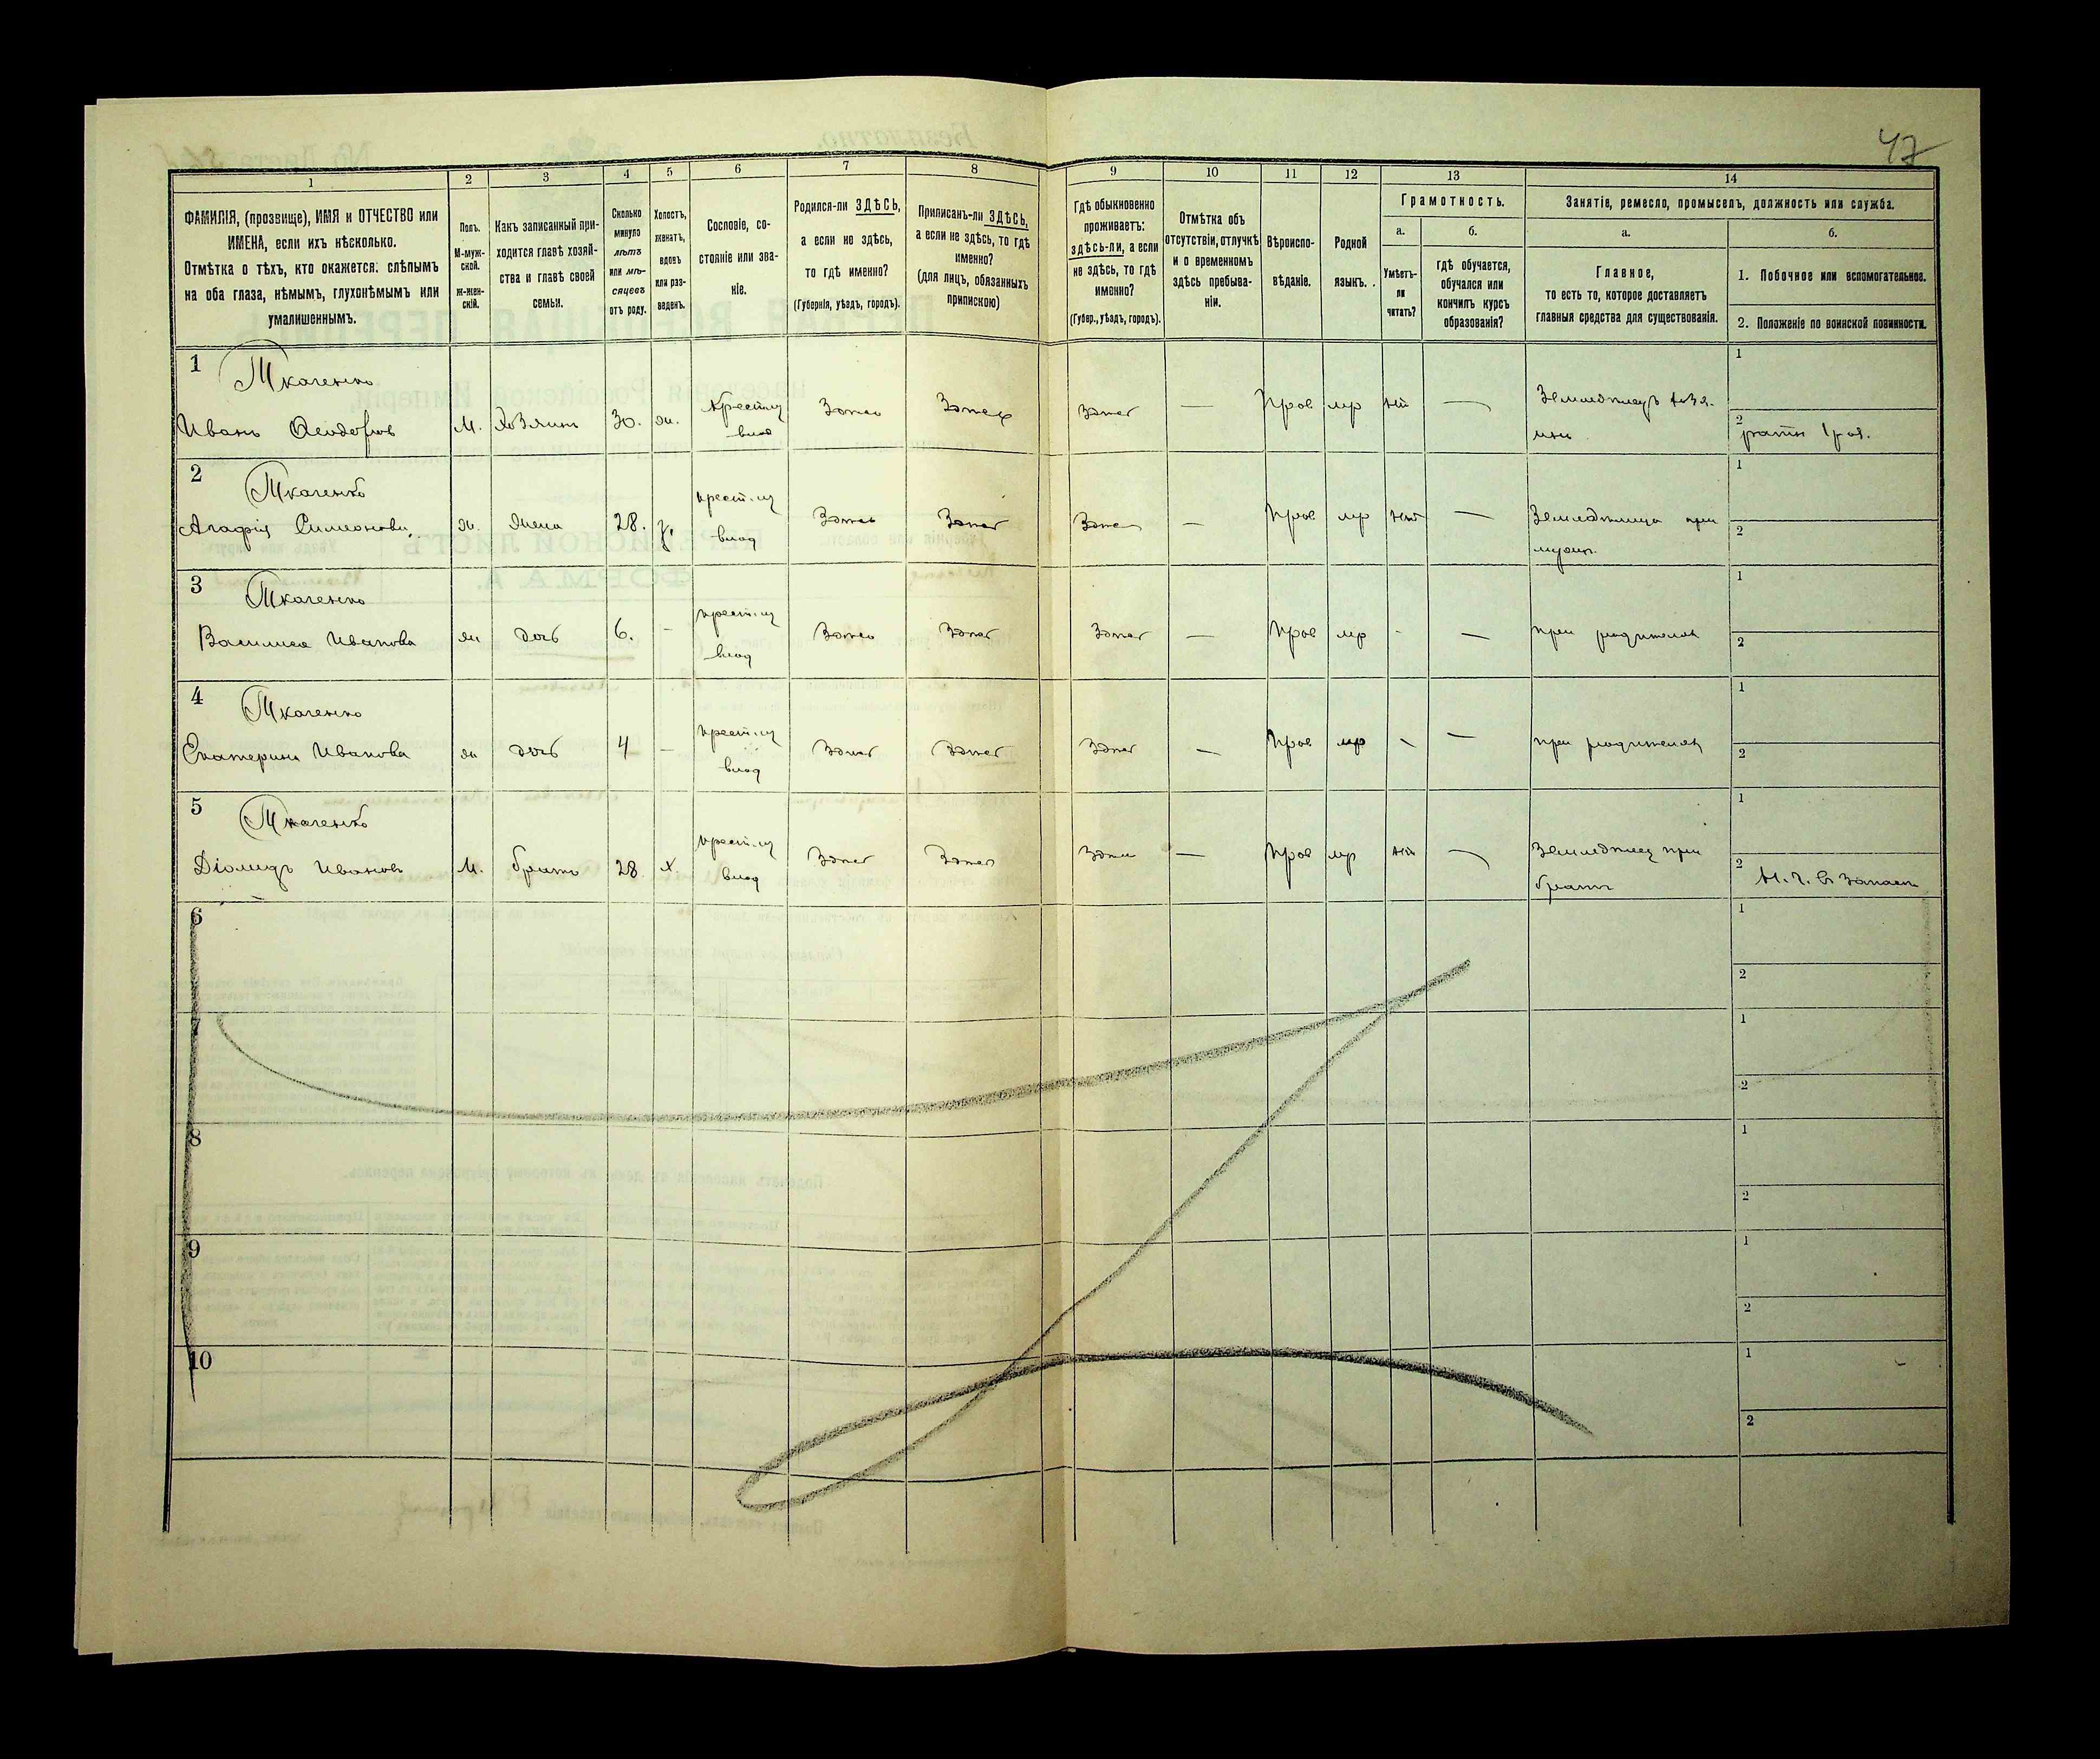 47
1
2
3
4
5
6
7
8
9
10
11
12
13
14
ФАМИЛІЯ, (прозвище), ИМЯ и ОТЧЕСТВО или
ИМЕНА, если ихъ нѣсколько.
Отмѣтка о тѣхъ, кто окажется: слѣпымъ
на оба глаза, нѣмымъ, глухонѣмымъ или
умалишеннымъ.
Полъ.
М-муж-
ской.
ж-жен-
скій.
Какъ записанный при-
ходится главѣ хозяй-
ства и главѣ своей
семьи.
Сколько
минуло
лѣтъ
или мѣ-
сяцевъ
отъ роду.
Холостъ,
женатъ,
вдовъ
или раз-
веденъ.
Сословіе, со-
стояніе или зва-
ніе.
Родился-ли ЗДѢСЬ,
а если не здѣсь,
то гдѣ именно?
(Губернія, уѣздъ, городъ).
Приписанъ-ли ЗДѢСЬ,
а если не здѣсь, то гдѣ
именно?
(для лицъ, обязанныхъ
припискою)
Гдѣ обыкновенно
проживаетъ:
здѣсь-ли, а если
не здѣсь, то гдѣ
именно?
(Губер., уѣздъ, городъ).
Отмѣтка объ
отсутствіи, отлучкѣ
и о временномъ
здѣсь пребыва-
ніи.
Вѣроиспо-
вѣданіе.
Родной
языкъ.
Грамотность.
а.
б.
Умѣетъ-
ли
читать?
гдѣ обучается,
обучался или
кончилъ курсъ
образованія?
Занятіе, ремесло, промыселъ, должность или служба.
а.
б.
Главное,
то есть то, которое доставляетъ
главныя средства для существованія.
1. Побочное или вспомогательное.
2. Положеніе по воинской повинности.
1 Ткаченко
Иванъ Феодоровъ М. Хозяинъ 30. ж. Крест. из влад Здѣсь Здѣсь Здѣсь — Прав мр нѣт — 1
2
2 Ткаченко
Агафія Симеонова ж. жена 28. крест. из влад Здѣсь Здѣсь Здѣсь — Прав мр нѣт — при мужѣ 1
2
3 Ткаченко
Василиса Иванова ж дочь 6. - крест. из влад Здѣсь Здѣсь Здѣсь — Прав мр - — при родителях 1
2
4 Ткаченко
Екатерина Иванова ж дочь 4 - крест. из влад Здѣсь Здѣсь Здѣсь — Прав мр - — при родителях 1
2
5 Ткаченко
Діомидъ Ивановъ М. братъ 28 х. крест. из влад Здѣсь Здѣсь Здѣсь — Прав мр нѣт — при братѣ 1
2 Н. Ч. в запасѣ
6 1
2
7 1
2
8 1
2
9 1
2
10 1
2